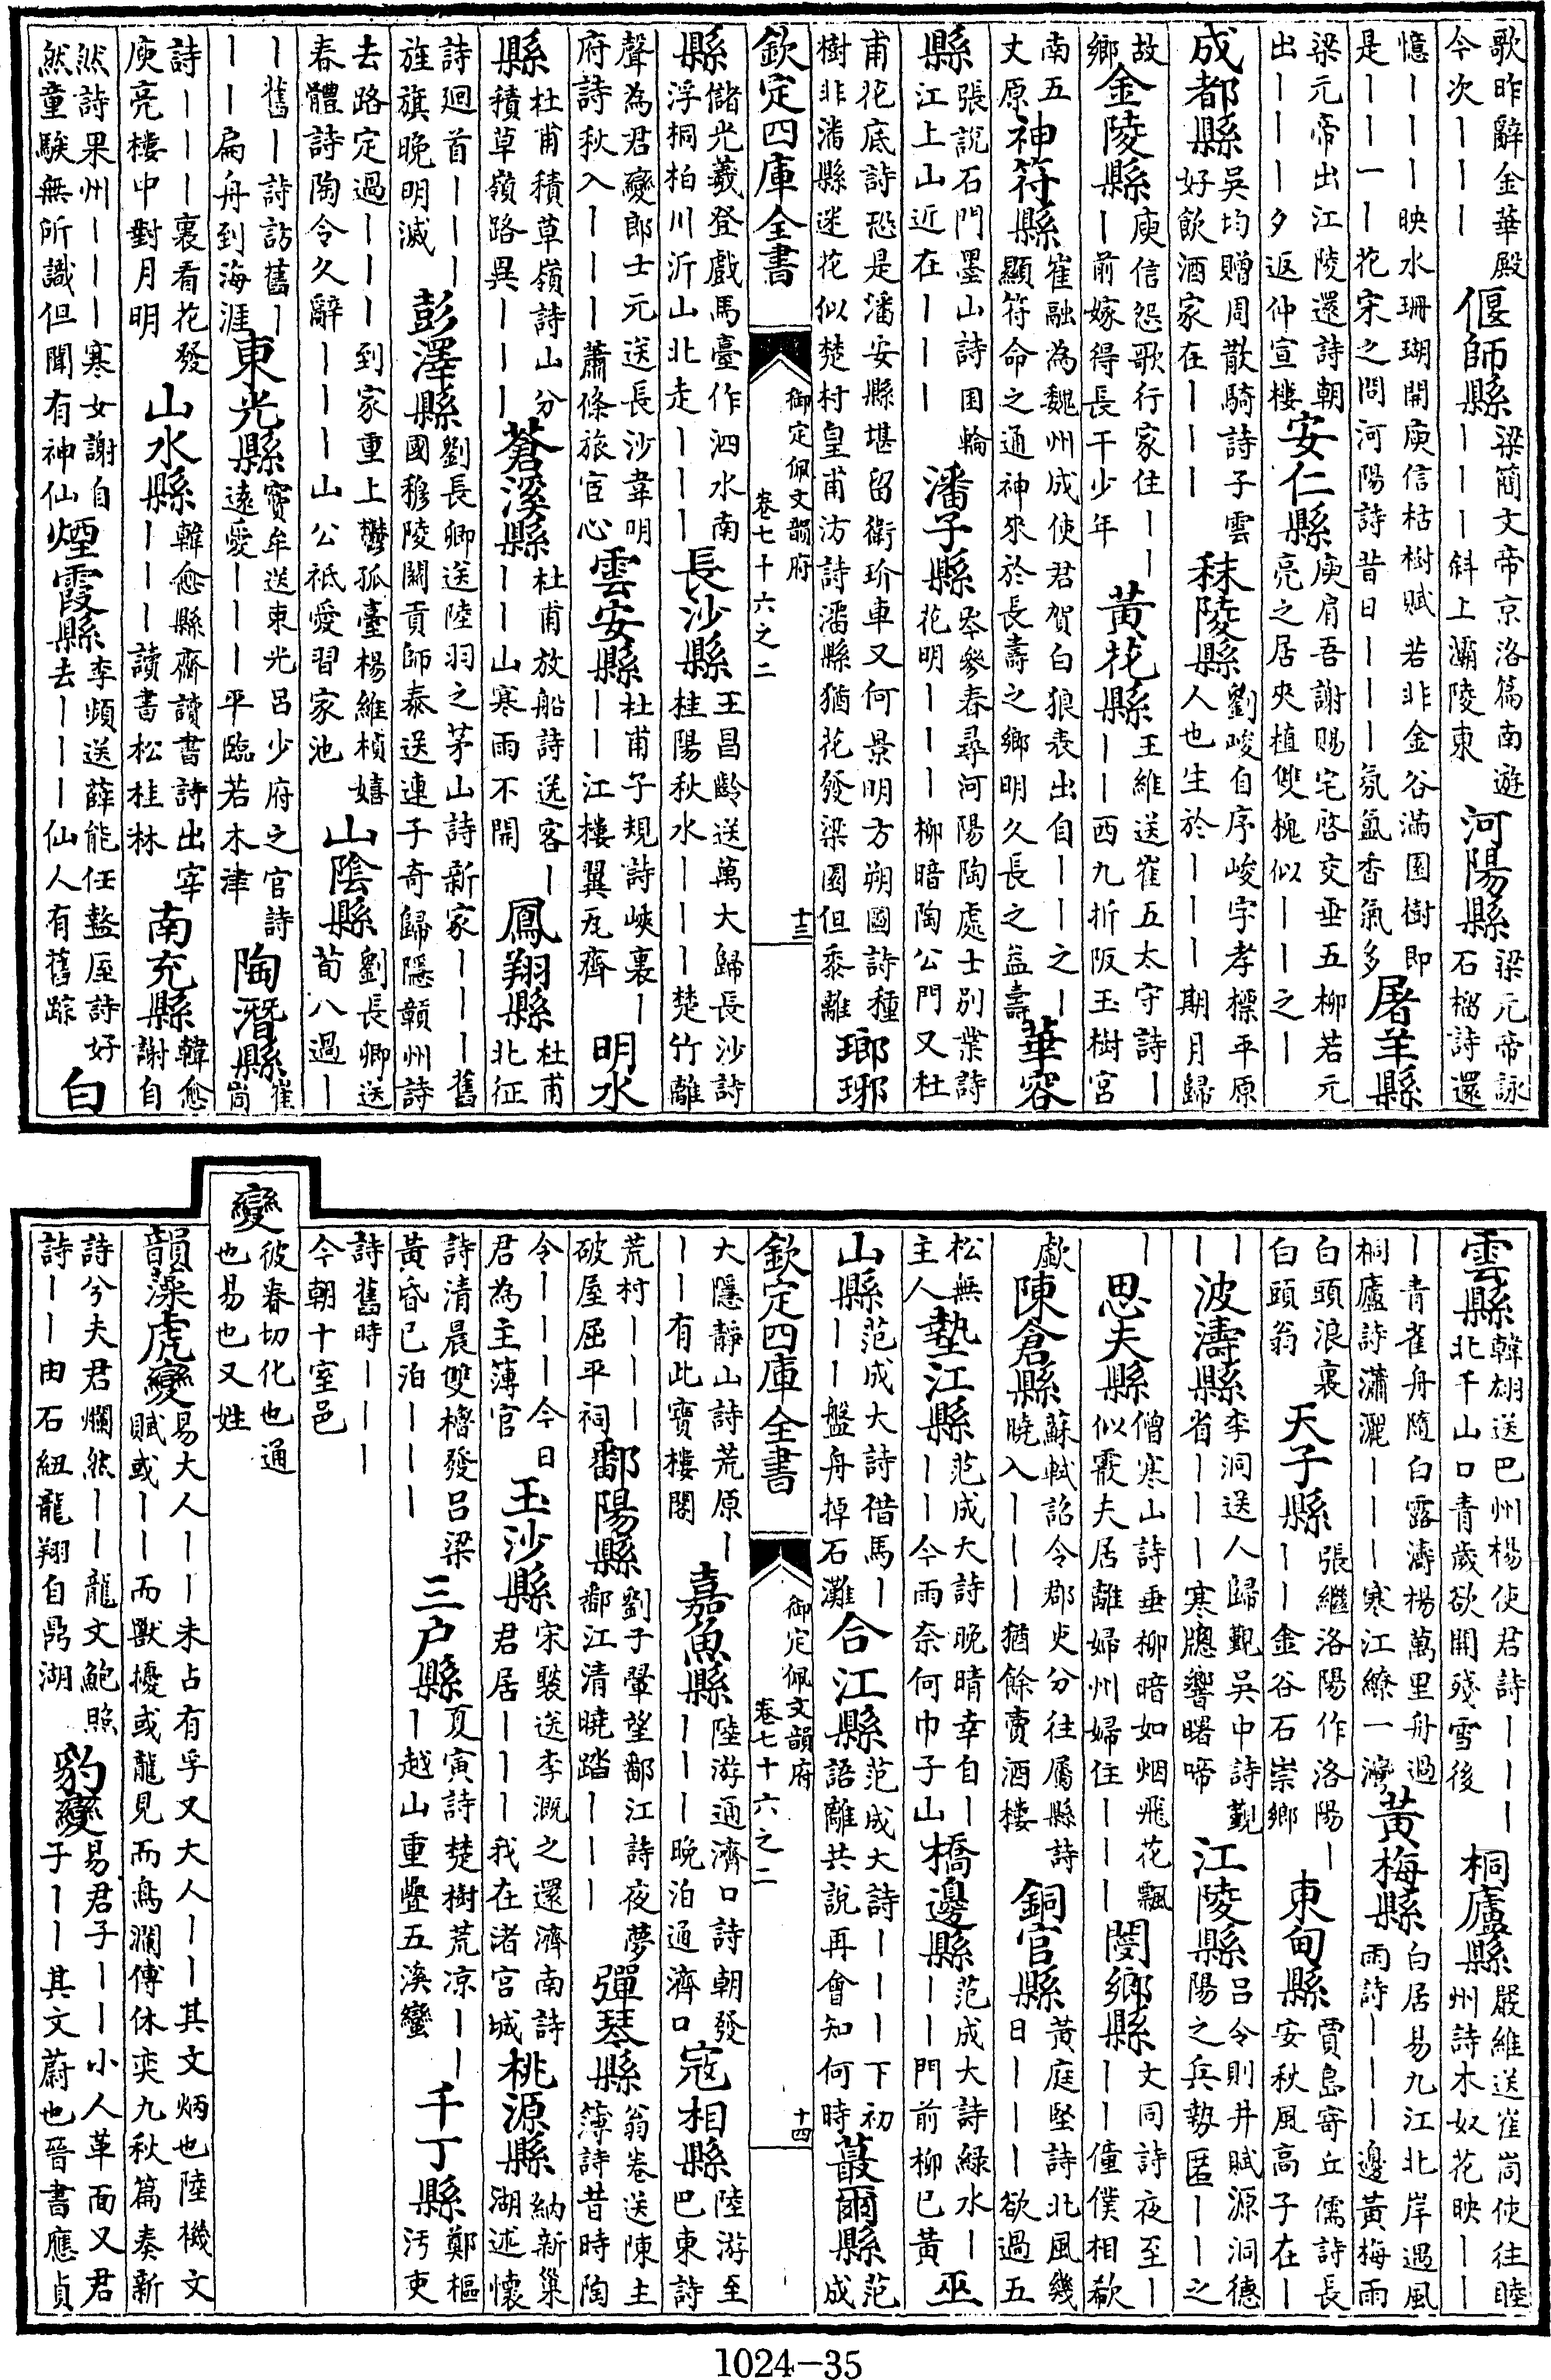 歌昨辭金華殿今次｜｜｜偃師縣梁簡文帝京洛篇南遊｜｜｜斜上灞陵東河陽縣梁元帝詠石榴詩還
憶｜｜｜映水珊瑚開庾信枯樹賦若非金谷滿園樹即是｜｜一｜花宋之問河陽詩昔日｜｜｜氛氳香氣多屠羊縣
梁元帝出江陵還詩朝出｜｜｜夕返仲宣樓安仁縣庾肩吾謝賜宅啓交垂五柳若元亮之居夾植雙槐似｜｜之｜
成都縣吳均贈周散騎詩子雲好飲酒家在｜｜｜秣陵縣劉峻自序峻字孝標平原人也生於｜｜｜期月歸
故鄉金陵縣庾信怨歌行家住｜｜｜前嫁得長干少年黃花縣王維送崔五太守詩｜｜｜西九折阪玉樹宮
南五丈原神符縣崔融為魏州成使君賀白狼表出自｜｜之｜顯符命之通神來於長壽之鄉明久長之益壽華容
縣張說石門墨山詩囷輪江上山近在｜｜｜潘子縣岑參春尋河陽陶處士別業詩花明｜｜｜柳暗陶公門又杜
甫花底詩恐是潘安縣堪留衛玠車又何景明方朔園詩種樹非潘縣迷花似楚村皇甫汸詩潘縣猶花發梁園但黍離瑯琊
欽定四庫全書 御定佩文韻府 卷七十六之二 十三
縣儲光羲登戲馬臺作泗水南浮桐柏川沂山北走｜｜｜長沙縣王昌齡送萬大歸長沙詩桂陽秋水｜｜｜楚竹離
聲為君變郎士元送長沙韋明府詩秋入｜｜｜蕭條旅宦心雲安縣杜甫子規詩峽裏｜｜｜江樓翼瓦齊明水
縣杜甫積草嶺詩山分積草嶺路異｜｜｜蒼溪縣杜甫放船詩送客｜｜｜山寒雨不開鳳翔縣杜甫北征
詩廻首｜｜｜旌旗晚明滅彭澤縣劉長卿送陸羽之茅山詩新家｜｜｜舊國穆陵關貢師泰送連子奇歸隱贛州詩
去路定過｜｜｜到家重上鬱孤臺楊維楨嬉春體詩陶令久辭｜｜｜山公祇愛習家池山陰縣劉長卿送荀八過｜
｜舊｜詩訪舊｜｜｜扁舟到海涯東光縣竇牟送東光呂少府之官詩遠愛｜｜｜平臨若木津陶潛縣崔峒
詩｜｜｜裏看花發庾亮樓中對月明山水縣韓愈縣齋讀書詩出宰｜｜｜讀書松桂林南充縣韓愈謝自
然詩果州｜｜｜寒女謝自然童騃無所識但聞有神仙煙霞縣李頻送薛能任盩厔詩好去｜｜｜仙人有舊踪白
雲縣韓翃送巴州楊使君詩｜｜｜北千山口青歲欲開殘雪後桐廬縣嚴維送崔峒使往睦州詩木奴花映｜｜
｜青雀舟隨白露濤楊萬里舟過桐廬詩瀟灑｜｜｜寒江繚一灣黃梅縣白居易九江北岸遇風雨詩｜｜｜邊黃梅雨
白頭浪裏白頭翁天子縣張繼洛陽作洛陽｜｜｜金谷石崇鄉東甸縣賈島寄丘儒詩長安秋風高子在｜
｜｜波濤縣李洞送人歸覲吳中詩覲省｜｜｜寒牕響曙啼江陵縣呂令則井賦源洞德陽之兵勢匿｜｜之
｜思夫縣僧寒山詩垂柳暗如烟飛花飄似霰夫居離婦州婦住｜｜｜閿鄉縣文同詩夜至｜｜｜僮僕相欷
歔陳倉縣蘇軾詔令郡吏分往屬縣詩曉入｜｜｜猶餘賣酒樓銅官縣黃庭堅詩北風幾日｜｜｜欲過五
松無主人墊江縣范成大詩晚晴幸自｜｜｜今雨奈何巾子山橋邊縣范成大詩綠水｜｜｜門前柳已黃巫
山縣范成大詩借馬｜｜｜盤舟掉石灘合江縣范成大詩｜｜｜下初語離共說再會知何時蕞爾縣范成
欽定四庫全書 御定佩文韻府 卷七十六之二 十四
大隱靜山詩荒原｜｜｜有此寶樓閣嘉魚縣陸游通濟口詩朝發｜｜｜晚泊通濟口寇相縣陸游至巴東詩
荒村｜｜｜破屋屈平祠鄱陽縣劉子翬望鄱江詩夜夢鄱江清曉踏｜｜｜彈琴縣翁卷送陳主簿詩昔時陶
令｜｜｜今日君為主薄官玉沙縣宋褧送李溉之還濟南詩君居｜｜｜我在渚宮城桃源縣納新巢湖述懷
詩清晨雙櫓發呂梁黃昏已泊｜｜｜三户縣夏寅詩楚樹荒凉｜｜｜越山重疊五溪蠻千丁縣鄭樞汚吏
詩舊時｜｜｜今朝十室邑
變彼眷切化也通也易也又姓
韻藻虎變易大人｜｜未占有孚又大人｜｜其文炳也陸機文賦或｜｜而獸擾或龍見而鳥瀾傅休奕九秋篇奏新
詩兮夫君爛然｜｜龍文鮑照詩｜｜由石紐龍翔自鼎湖豹變易君子｜｜小人革面又君子｜｜其文蔚也晉書應貞
1024-35